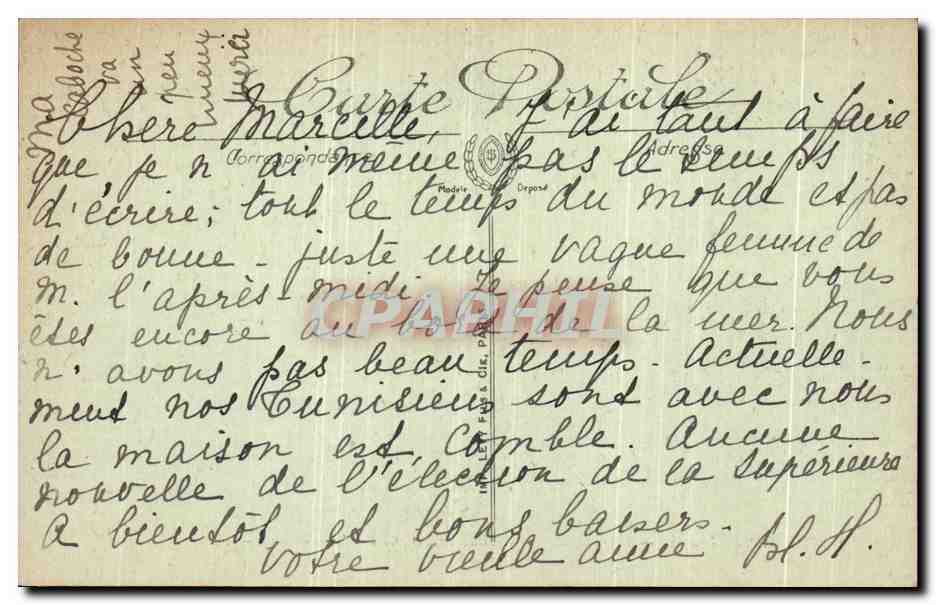 Ma
va un
peu
mieux
Carte Postale
Correspondance
Adresse
Modèle Déposé
Chère Marcelle, J'ai tant à faire
que je n'ai même pas le temps
d'écrire; tout le temps du monde et pas
de bonne - juste une vague femme de
m. l'après-midi. Je pense que vous
êtes encore au bord de la mer. Nous
n'avons pas beau temps. Actuelle-
ment nos Tunisiens sont avec nous
la maison est comble. Aucune
nouvelle de l'élection de la Supérieure
A bientôt et bons baisers.
Votre vieille amie Bl. H.
IMP. LEVY FILS & CIE, PARIS
CPAPHIL